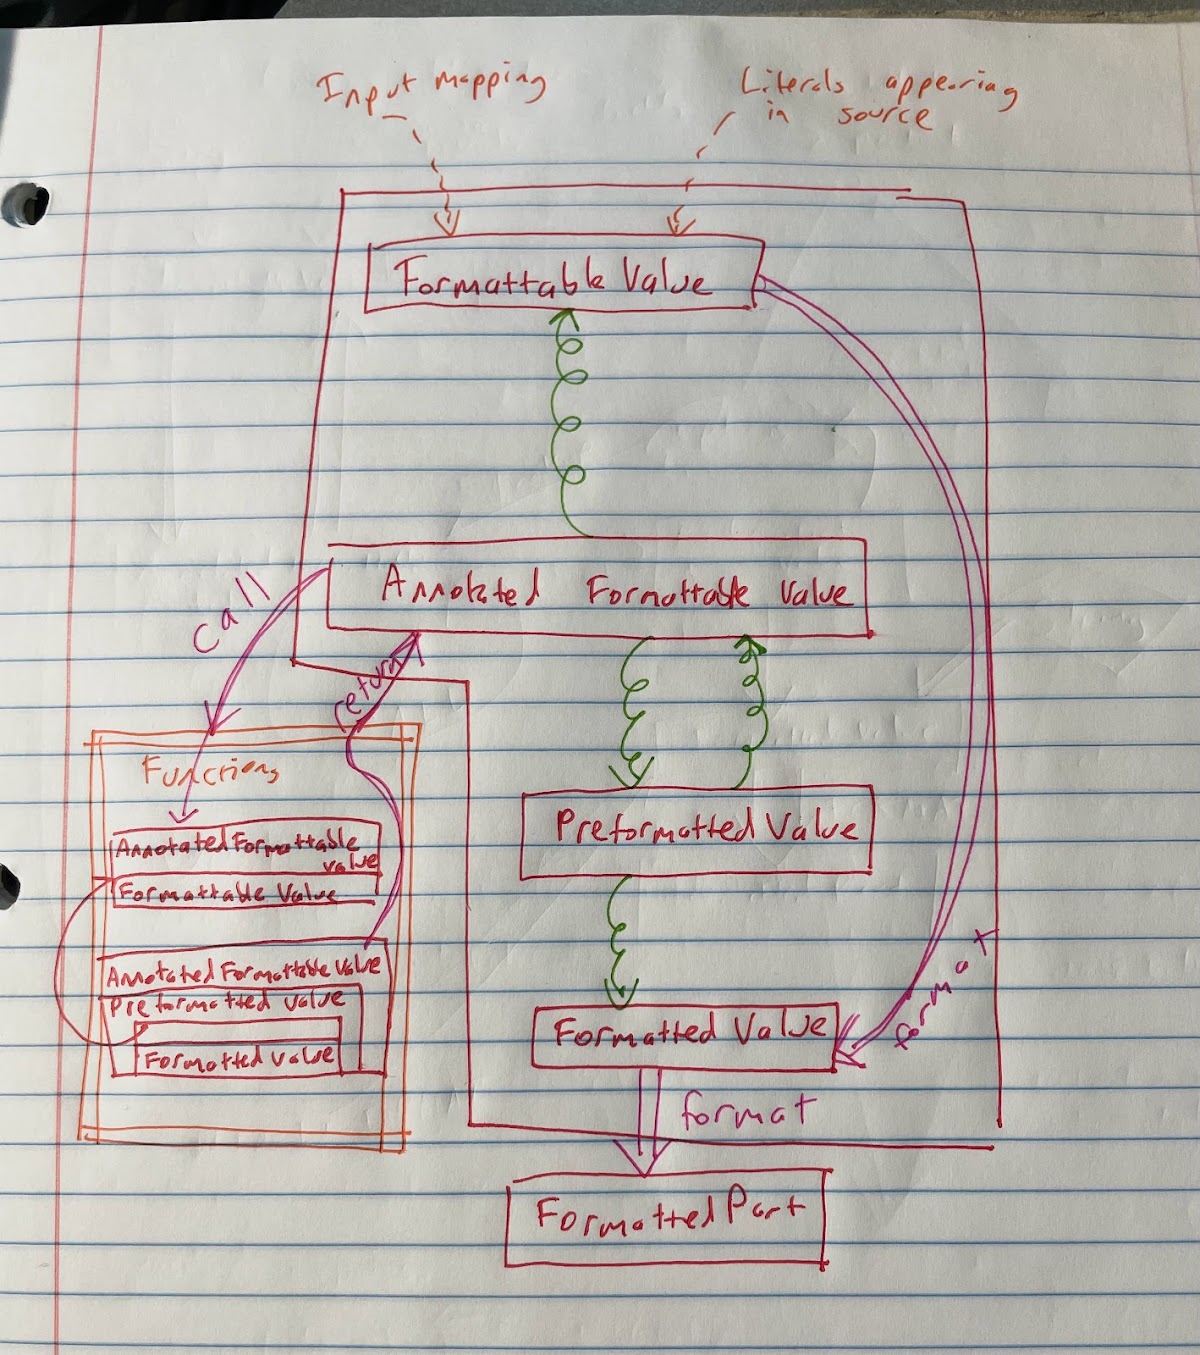 Input mapping
Literals appearing
in source
Formattable Value
Annotated Formattable Value
call
return
Functions
Annotated Formattable
value
Formattable Value
Annotated Formattable Value
Preformatted Value
Formatted Value
Preformatted Value
Formatted Value
format
format
Formatted Part